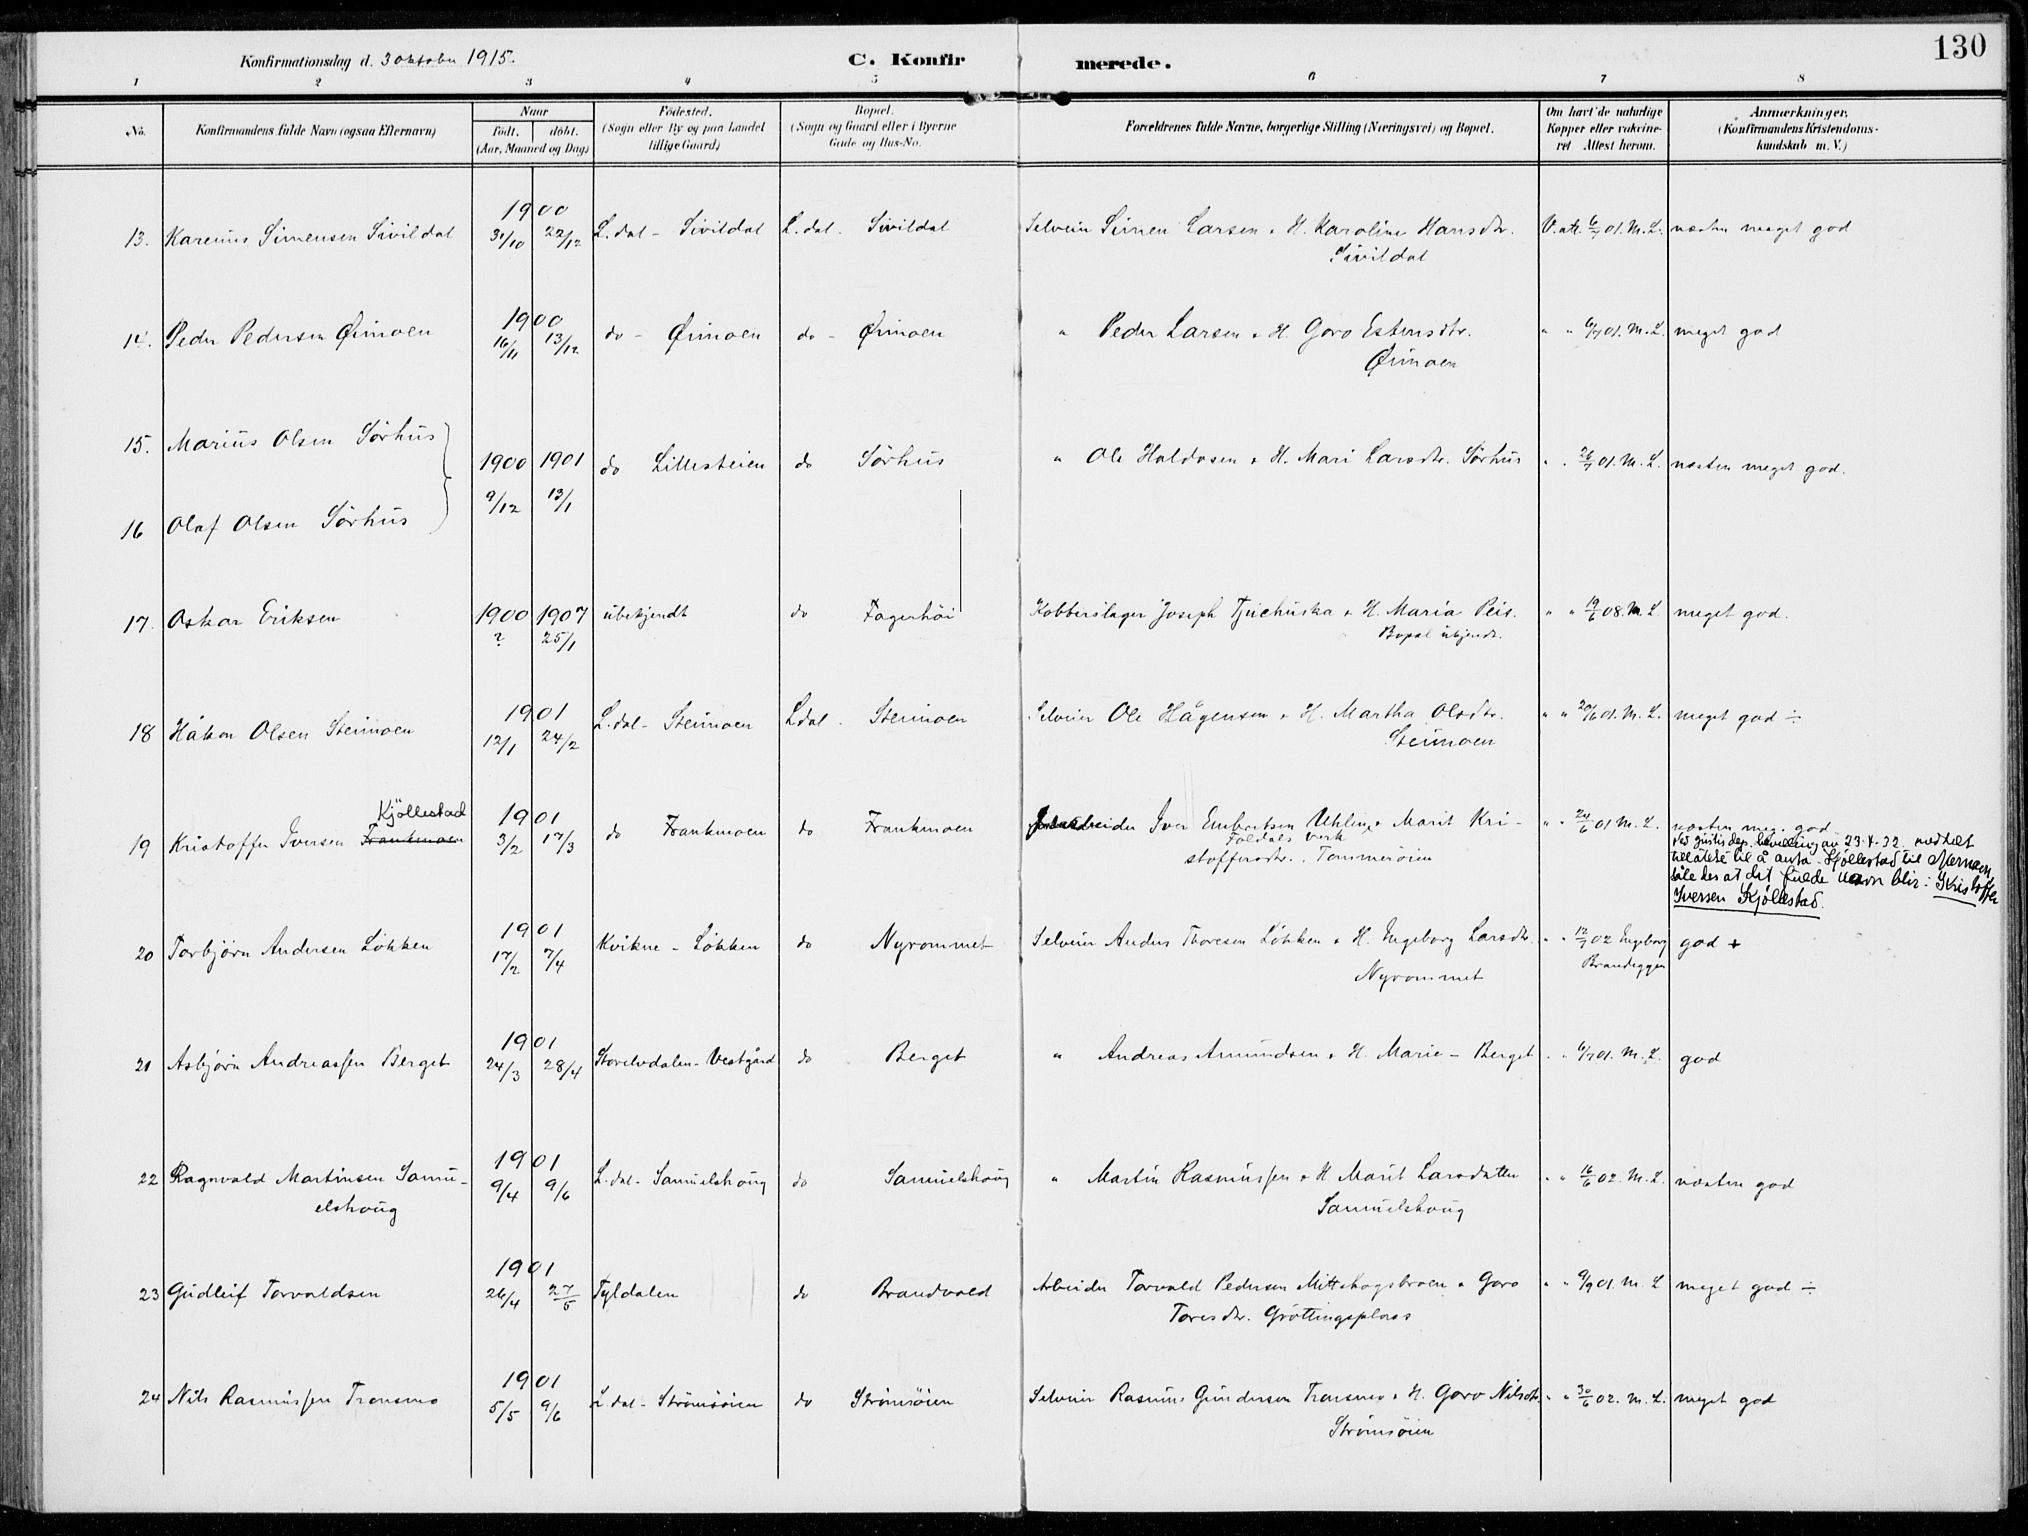 130
Konfirmationsdag d. 3 oktober 1915.
C. Konfirmerede.
1 2 3 4 5 6 7 8
No.
Konfirmandens fulde Navn (ogsaa Efternavn)
Naar
født. døbt.
(Aar, Maaned og Dag)
Fødested.
(Sogn eller By og paa Landet
tillige Gaard)
Bopæl.
(Sogn og Gaard eller i Byerne
Gade og Hus-No.
Forældrenes fulde Navne, borgerlige Stilling (Næringsvei) og Bopæl.
Om havt de naturlige
Kopper eller vakcine-
ret Attest herom.
Anmærkninger.
(Konfirmandens Kristendoms-
kundskab m. V.)
1900
13. Karenus Simensen Sivildal 31/10 22/12 L.dal - Sivildal L.dal. Sivildal Selveier Simen Larsen & H. Karoline Hansdtr. V. att. 6/7 01. M. L. næsten meget god
Sivildal
1900
14. Peder Pedersen Øimoen 16/11 13/12 do - Øimoen do - Øimoen " Peder Larsen & H. Goro Estensdtr. " " 6/7 01. M. L. meget god
Øimoen
15. Marius Olsen Sørhus
1900 1901 do Lillesteien do Sørhus " Ole Haldosen & H. Mari Larsdtr. Sørhus " " 26/7 01. M. L. næsten meget god.
9/12 13/1
16 Olaf Olsen Sørhus
17. Oskar Eriksen 1900 1907 ubekjendt do Fagerhöi Kobberslager Joseph & H. Maria Peis. " " 19/6 08. M. L. meget god.
? 25/1 Bopæl ukjendt.
1901
18 Håkon Olsen Steimoen 12/1 24/2 L.dal - Steimoen L.dal. Steimoen Selveier Ole Hågensen & H. Martha Olsdtr. " " 20/6 01. M. L. meget god ÷
Steimoen
Kjöllestad
1901
19 Kristoffer Iversen Frankmoen 3/2 17/3 do Frankmoen do Frankmoen Iver Embretsen Uhling & Marit Kri- " " 24/6 01 M. L. næsten meg. god
Foldals verk
stoffersdtr. . Tommerøien
ved justisdep. bevilling av 23-4-32 meddelt
tillatelse til å anta Kjøllestad til efternavn
således at det fulde navn blir: Kristoffer
Iversen Kjøllestad.
1901
20 Torbjørn Andersen Løkken 17/2 7/4 Kvikne - Løkken do Nyrommet Selveier Anders Thoresen Løkken & H. Ingeborg Larsdtr. " " 12/7 02 Ingeborg god +
Nyrommet Brandeggen
1901
21 Asbjørn Andreassen Berget 24/3 28/4 Storelvdalen - Vestgård do Berget " Andreas Amundsen & H. Marie - Berget " " 6/7 01. M. L. god
1901
22 Ragnvald Martinsen Samu- 9/4 9/6 L.dal - Samuelshoug do Samuelshoug " Martin Rasmussen & H Marit Larsdatter " " 16/6 02. M. L. næsten god
elshoug Samuelshoug
1901
23 Gudleif Torvaldsen 26/4 27/5 Tyldalen do Brandvold Arbeider Torvald Pedersen Mittskogsbroen & Goro " " 9/9 01. M. L meget god ÷
Toresdtr. Gröttingsplass
1901
24 Nils Rasmussen Tronsmo 5/5 9/6 L.dal - Strömsöien do Strömsöien Selveier Rasmus Gundersen Tronsmo & H. Goro Nilsdtr. " " 30/6 02. M. L. meget god
Strömsöien